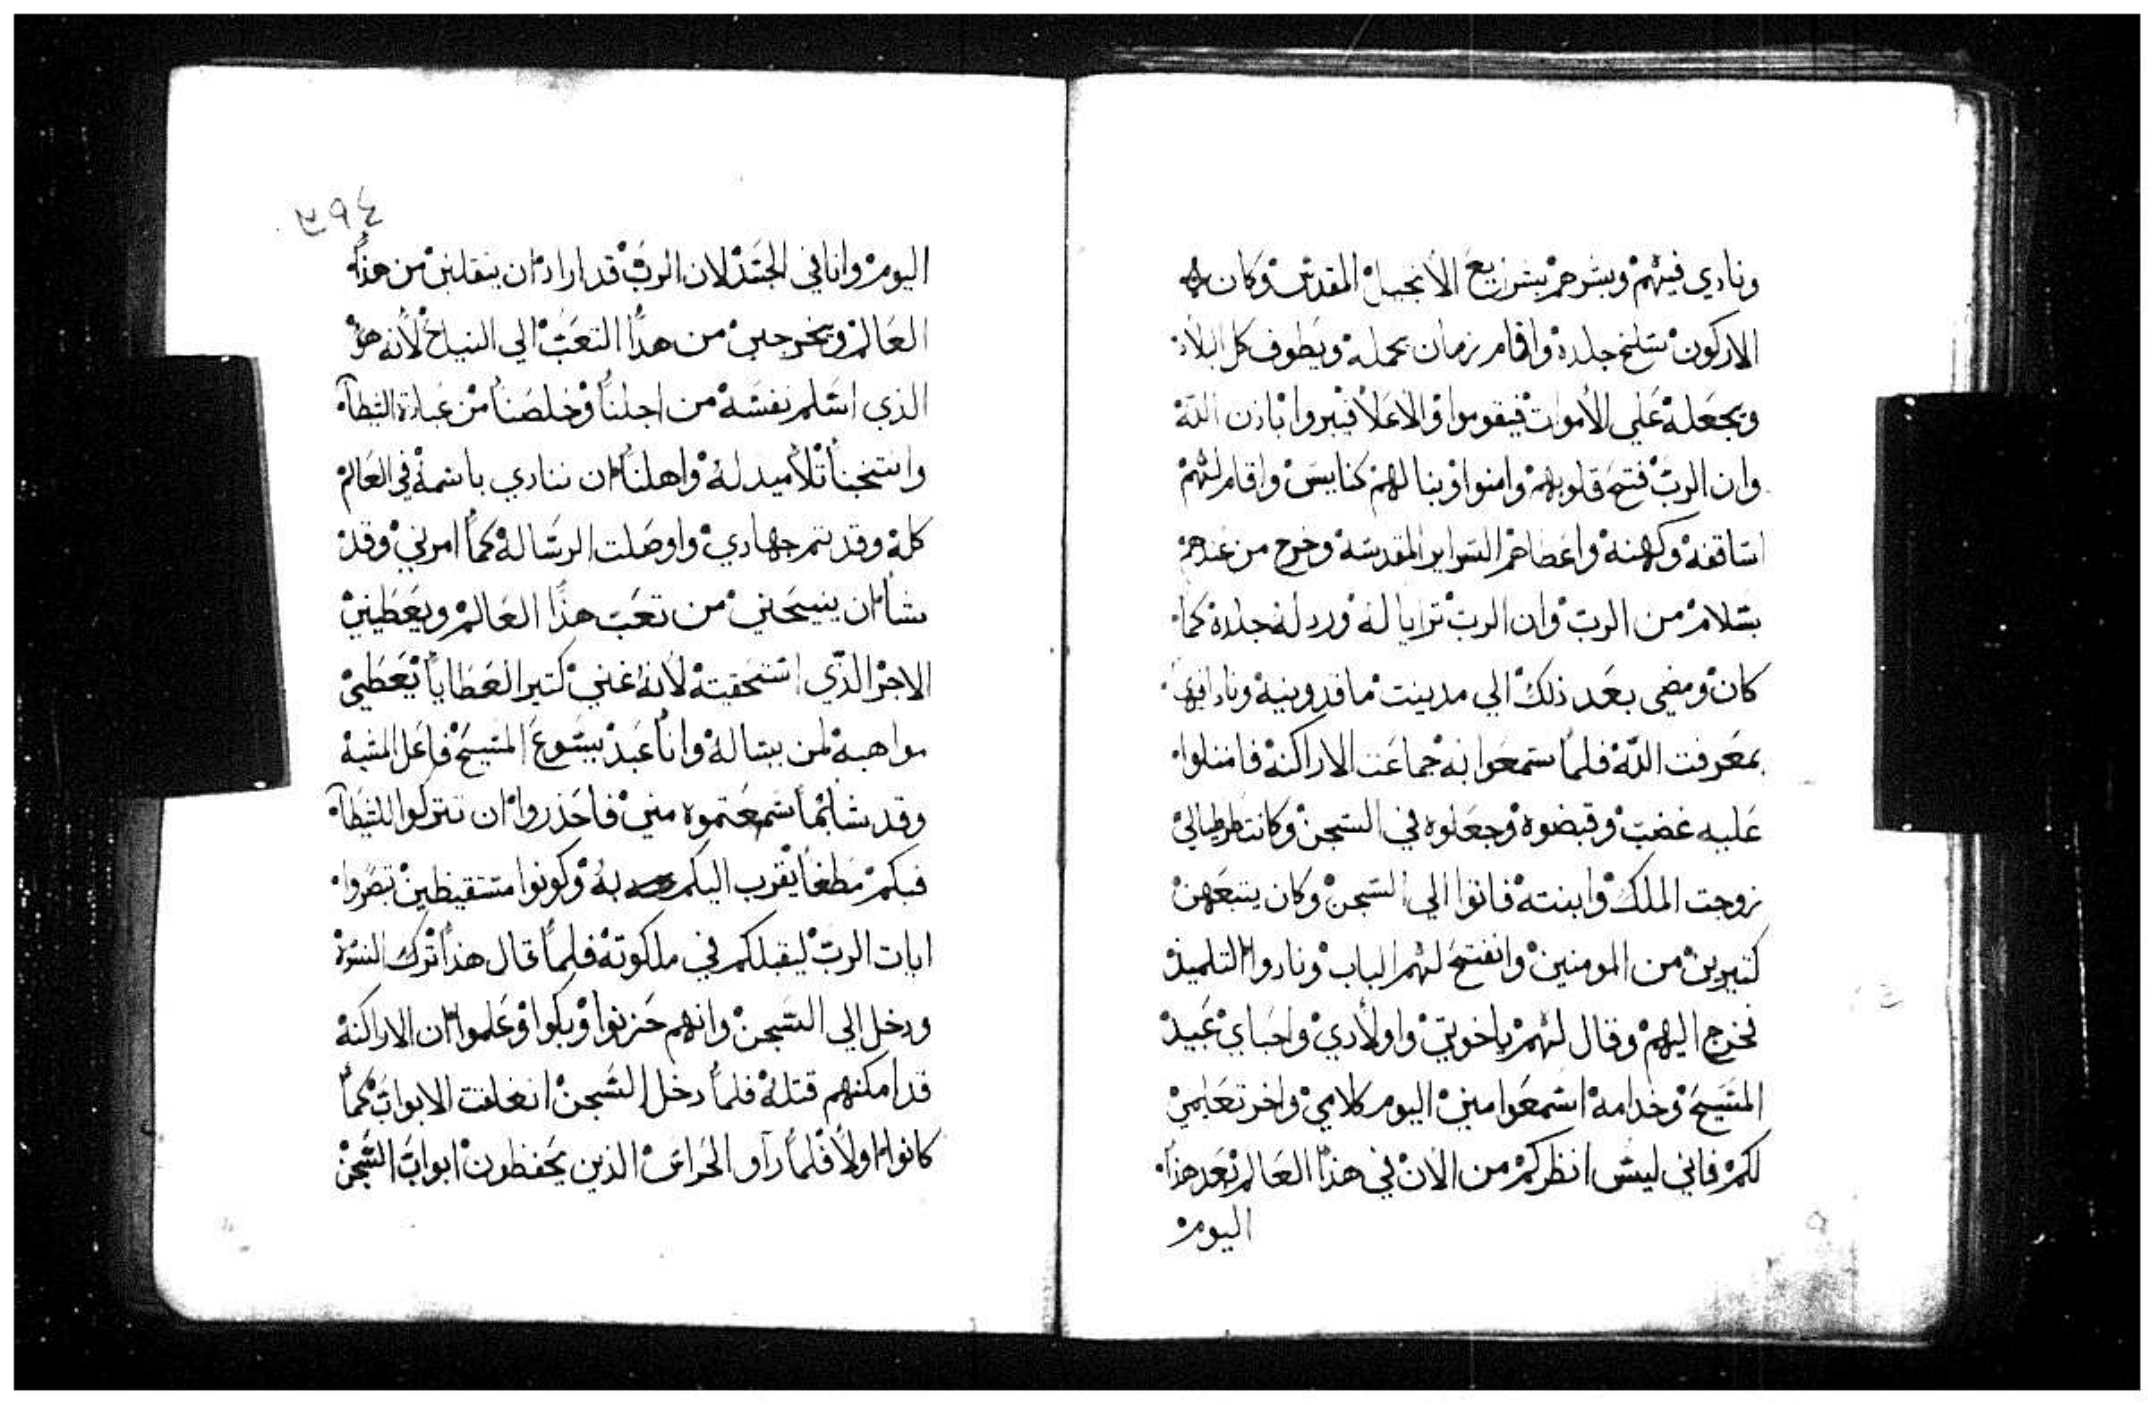 ونادي فيهم وبشرهم بشرايع الانجيل المقدس وكان
الاركون سلخ جلده واقام زمان يحمله ويطوف كل البلاد
ويجعله علي الاموات فيقوموا والاعلا فيبروا باذن الله
وان الرب فتح قلوبهم وامنوا وبنا لهم كنايس واقام لهم
اساقفه وكهنه واعطاهم السراير المقدسه وخرج من عندهم
بسلام من الرب وان الرب ترايا له ورد له جلده كما
كان ومضي بعد ذلك الي مدينت ماقدونيه ونادا فيها
بمعرفت الله فلما سمعوا به جماعت الاراكنه فامتلوا
عليه غضب وقبضوه وجعلوه في السجن وكانت
زوجت الملك وابنته فاتوا الي السجن وكان يتبعهن
كتيرين من المومنين وانفتح لهم الباب ونادوا التلميذ
فخرج اليهم وقال لهم ياخوتي واولادي واحباي عبيد
المسيح وخدامه اسمعوا مني اليوم كلامي واخر تعليمي
لكم فاني ليس انظركم من الان في هذا العالم بعد هذا
اليوم
٣٩٤
اليوم وانا في الجسد لان الرب قد اراد ان ينقلني من هذا
العالم ويخرجني من هذا التعب الي النياح لانه هو
الذي اسلم نفسه من اجلنا وخلصنا من عبادة الشيطان
وانتخبنا تلاميد له واهلنا ان ننادي باسمه في العالم
كله وقد تم جهادي واوصلت الرساله كما امرني وقد
شا ان ينيحني من تعب هذا العالم ويعطيني
الاجر الذي استحقيته لانه غني كتير العطايا يعطي
مواهبه لمن يساله وانا عبد يسوع المسيح فاعل المشيه
وقد شا بما سمعتموه مني فاحذروا ان تتركوا للشيطان
فيكم مطغا يقرب اليكم به وكونوا مستقيظين تصروا
ابات الرب ليقبلكم في ملكوته فلما قال هذا ترك النسوه
ودخل الي السجن وانهم حزنوا وبكوا وعلموا ان الاراكنه
قد امكنهم قتله فلما دخل السجن انغلقت الابواب كما
كانوا اولا فلما راو الحراس الذين يحفظون ابواب السجن